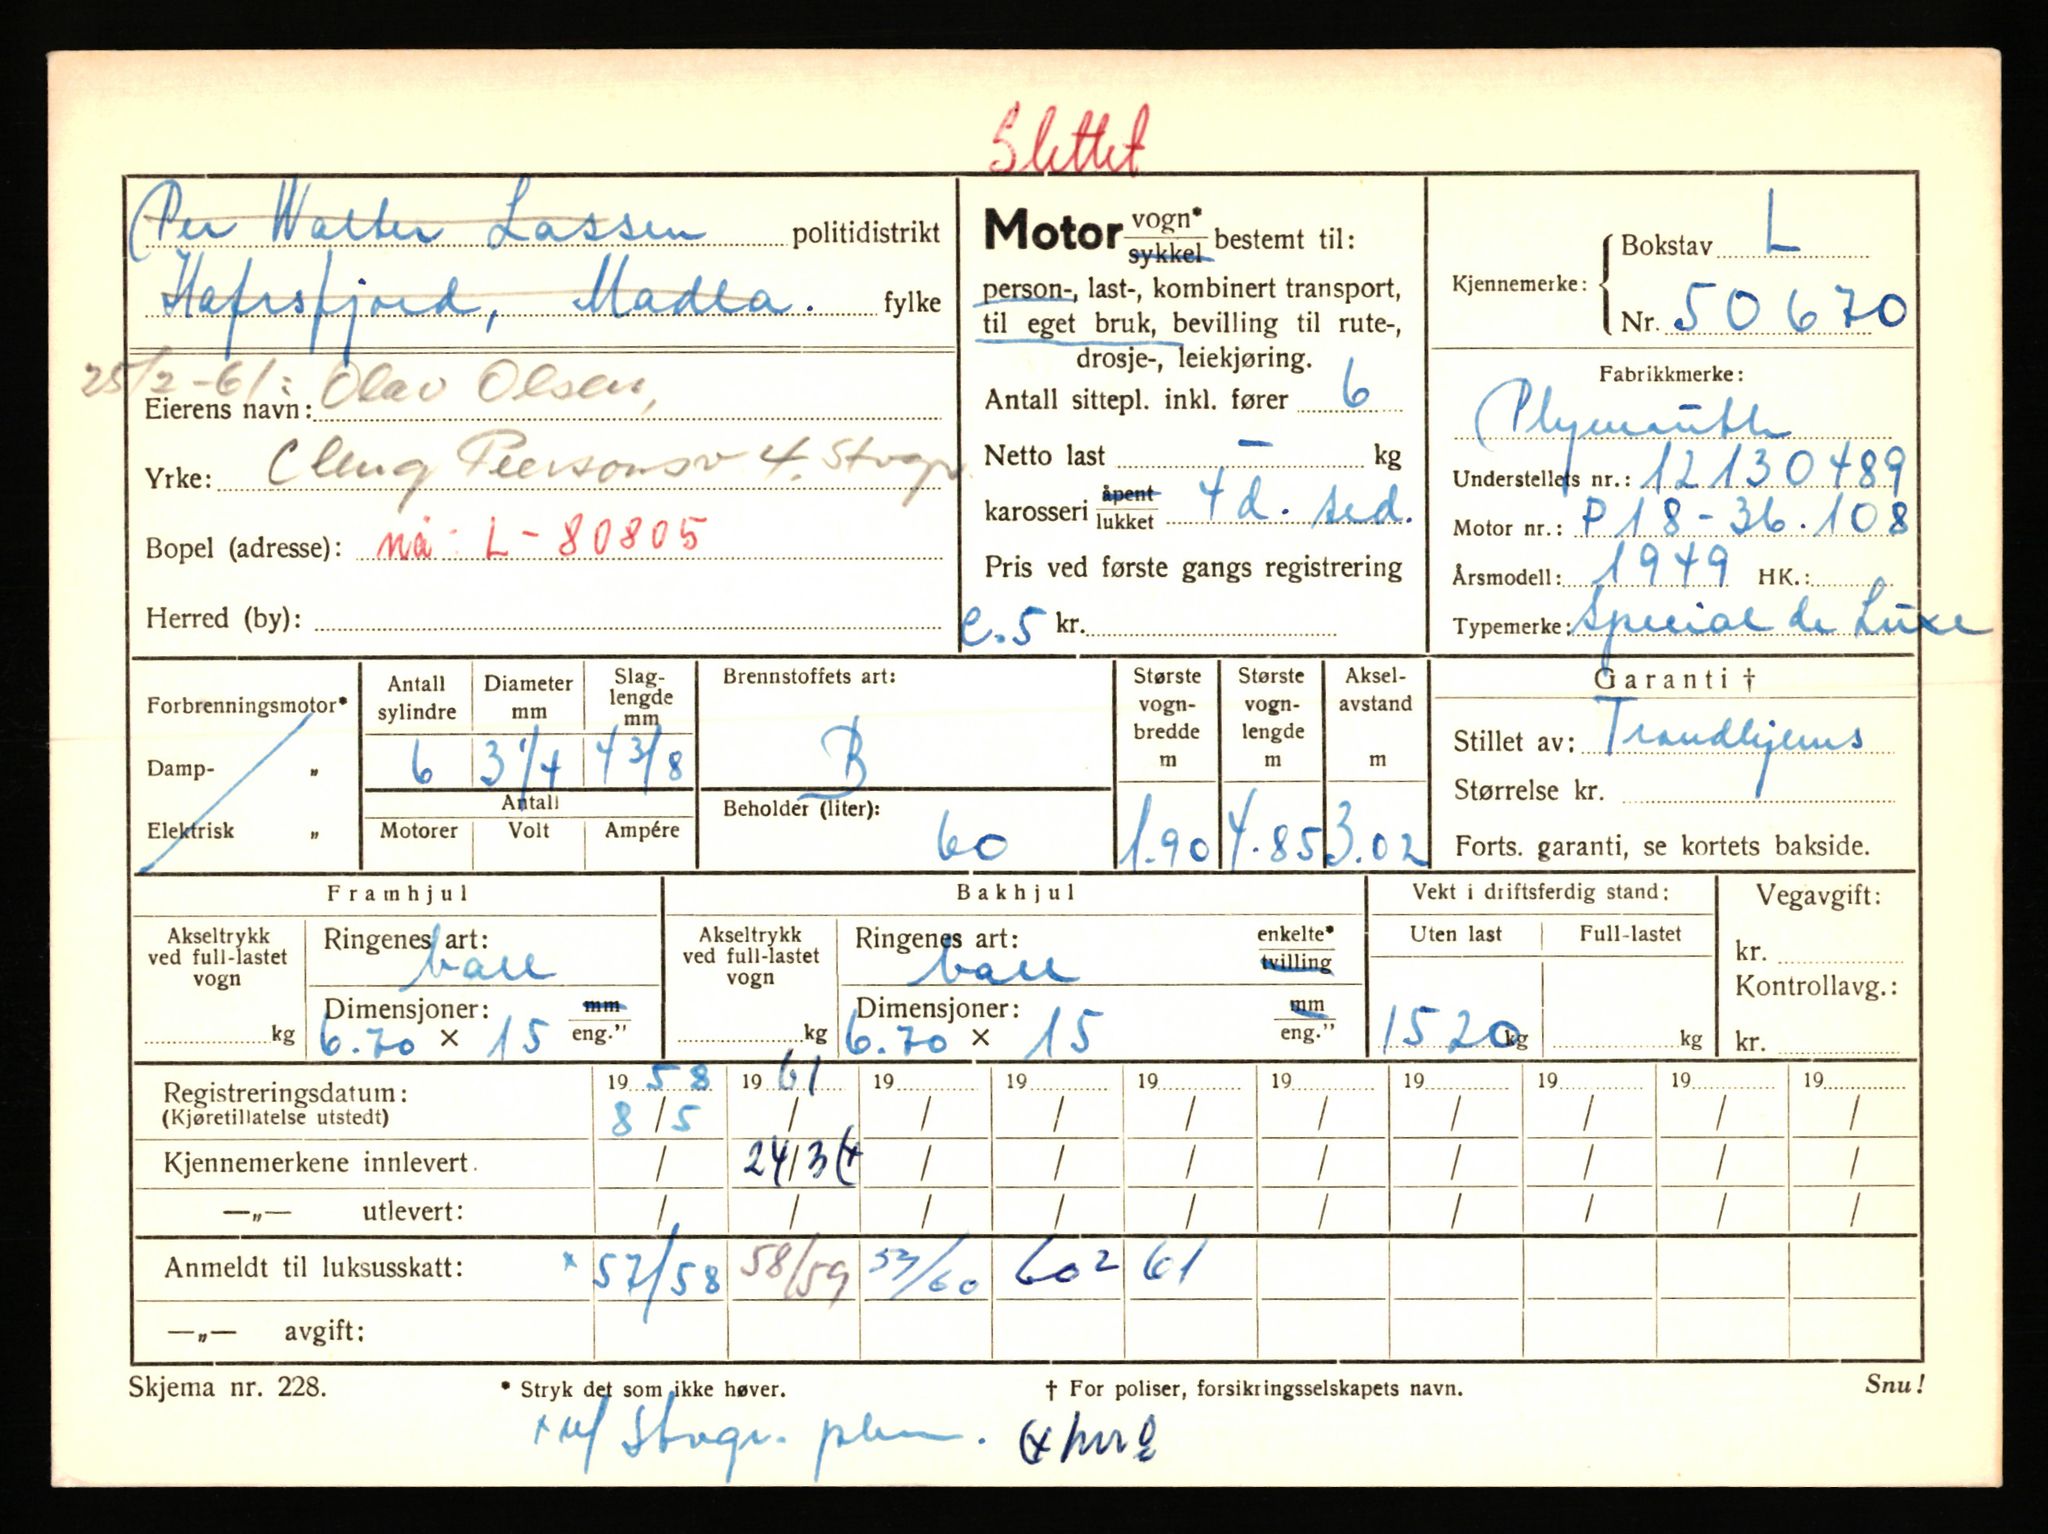 Slettet
Per Walter Lassen politidistrikt
Hafrsfjord, Madla. fylke
25/2-61: Olav Olsen,
Eierens navn:
Yrke: Cleng Peersonsv 4. Stvgr.
Bopel (adresse): nå: L-80805
Herred (by):
Motor vogn* sykkel bestemt til:
person-, last-, kombinert transport,
til eget bruk, bevilling til rute-,
drosje-, leiekjøring.
Antall sittepl. inkl. fører 6
Netto last – kg
karosseri åpent lukket 4 d. sed.
Pris ved første gangs registrering
e.5 kr.
Kjennemerke: Bokstav L
Nr. 50670
Fabrikkmerke:
Plymouth
Understellets nr.: 12130489
Motor nr.: P18-36.108
Årsmodell: 1949 HK.:
Typemerke: Special de Luxe
Forbrenningsmotor*
Damp- „
Elektrisk „
Antall sylindre 6
Diameter mm 3 1/4
Slag-lengde mm 4 3/8
Antall
Motorer Volt Ampére
Brennstoffets art:
B
Beholder (liter):
60
Største vogn-bredde m 1.90
Største vogn-lengde m 4.85
Aksel-avstand m 3.02
Garanti †
Stillet av: Trondhjems
Størrelse kr.
Forts. garanti, se kortets bakside.
Framhjul
Akseltrykk ved full-lastet vogn kg
Ringenes art: ball
Dimensjoner: mm eng.”
6.70 × 15
Bakhjul
Akseltrykk ved full-lastet vogn kg
Ringenes art: ball enkelte* tvilling
Dimensjoner: mm eng.”
6.70 × 15
Vekt i driftsferdig stand:
Uten last Full-lastet
1520 kg kg
Vegavgift:
kr.
Kontrollavg.:
kr.
Registreringsdatum: 19 58 19 61 19 19 19 19 19 19 19 19
(Kjøretillatelse utstedt) 8/5 / / / / / / / / /
Kjennemerkene innlevert. / 24/3 (x / / / / / / / /
—„— utlevert: / / / / / / / / / /
Anmeldt til luksusskatt: x 57/58 58/59 59/60 60² 61
—„— avgift:
Skjema nr. 228. * Stryk det som ikke høver. † For poliser, forsikringsselskapets navn. Snu!
x Stvgr.